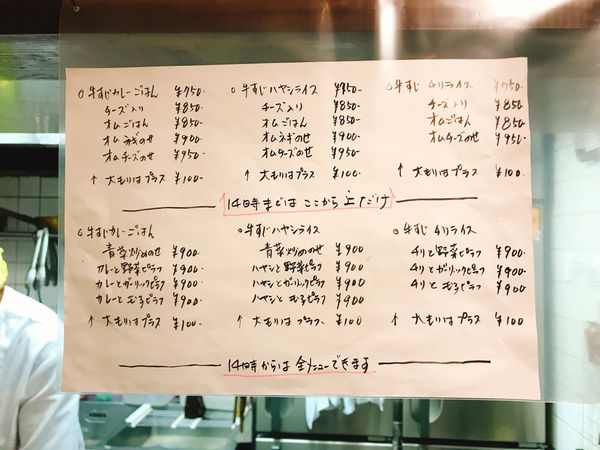 ○牛すじカレーごはん ¥750-
チーズ入り ¥850-
オムごはん ¥850-
オムネギのせ ¥900-
オムチーズのせ ¥950-
↑ 大もりはプラス ¥100-
○牛すじハヤシライス ¥850-
チーズ入り ¥850-
オムごはん ¥850-
オムネギのせ ¥900-
オムチーズのせ ¥950-
↑ 大もりはプラス ¥100-
○牛すじチリライス ¥750
チーズ入り ¥850
オムごはん ¥850-
オムチーズのせ ¥950-
↑ 大もりはプラス ¥100-
14時までは ここから上だけ
○牛すじカレーごはん
青菜炒めのせ ¥900-
カレーと野菜ピラフ ¥900-
カレーとガーリックピラフ ¥900-
カレーと むろピラフ ¥900-
↑ 大もりはプラス ¥100-
○牛すじハヤシライス
青菜炒めのせ ¥900
ハヤシと野菜ピラフ ¥900
ハヤシとガーリックピラフ ¥900
ハヤシと むろピラフ ¥900
↑ 大もりはプラス ¥100
○牛すじチリライス
チリと野菜ピラフ ¥900-
チリとガーリックピラフ ¥900-
チリと むろピラフ ¥900-
↑ 大もりはプラス ¥100
14時からは 全メニューできます